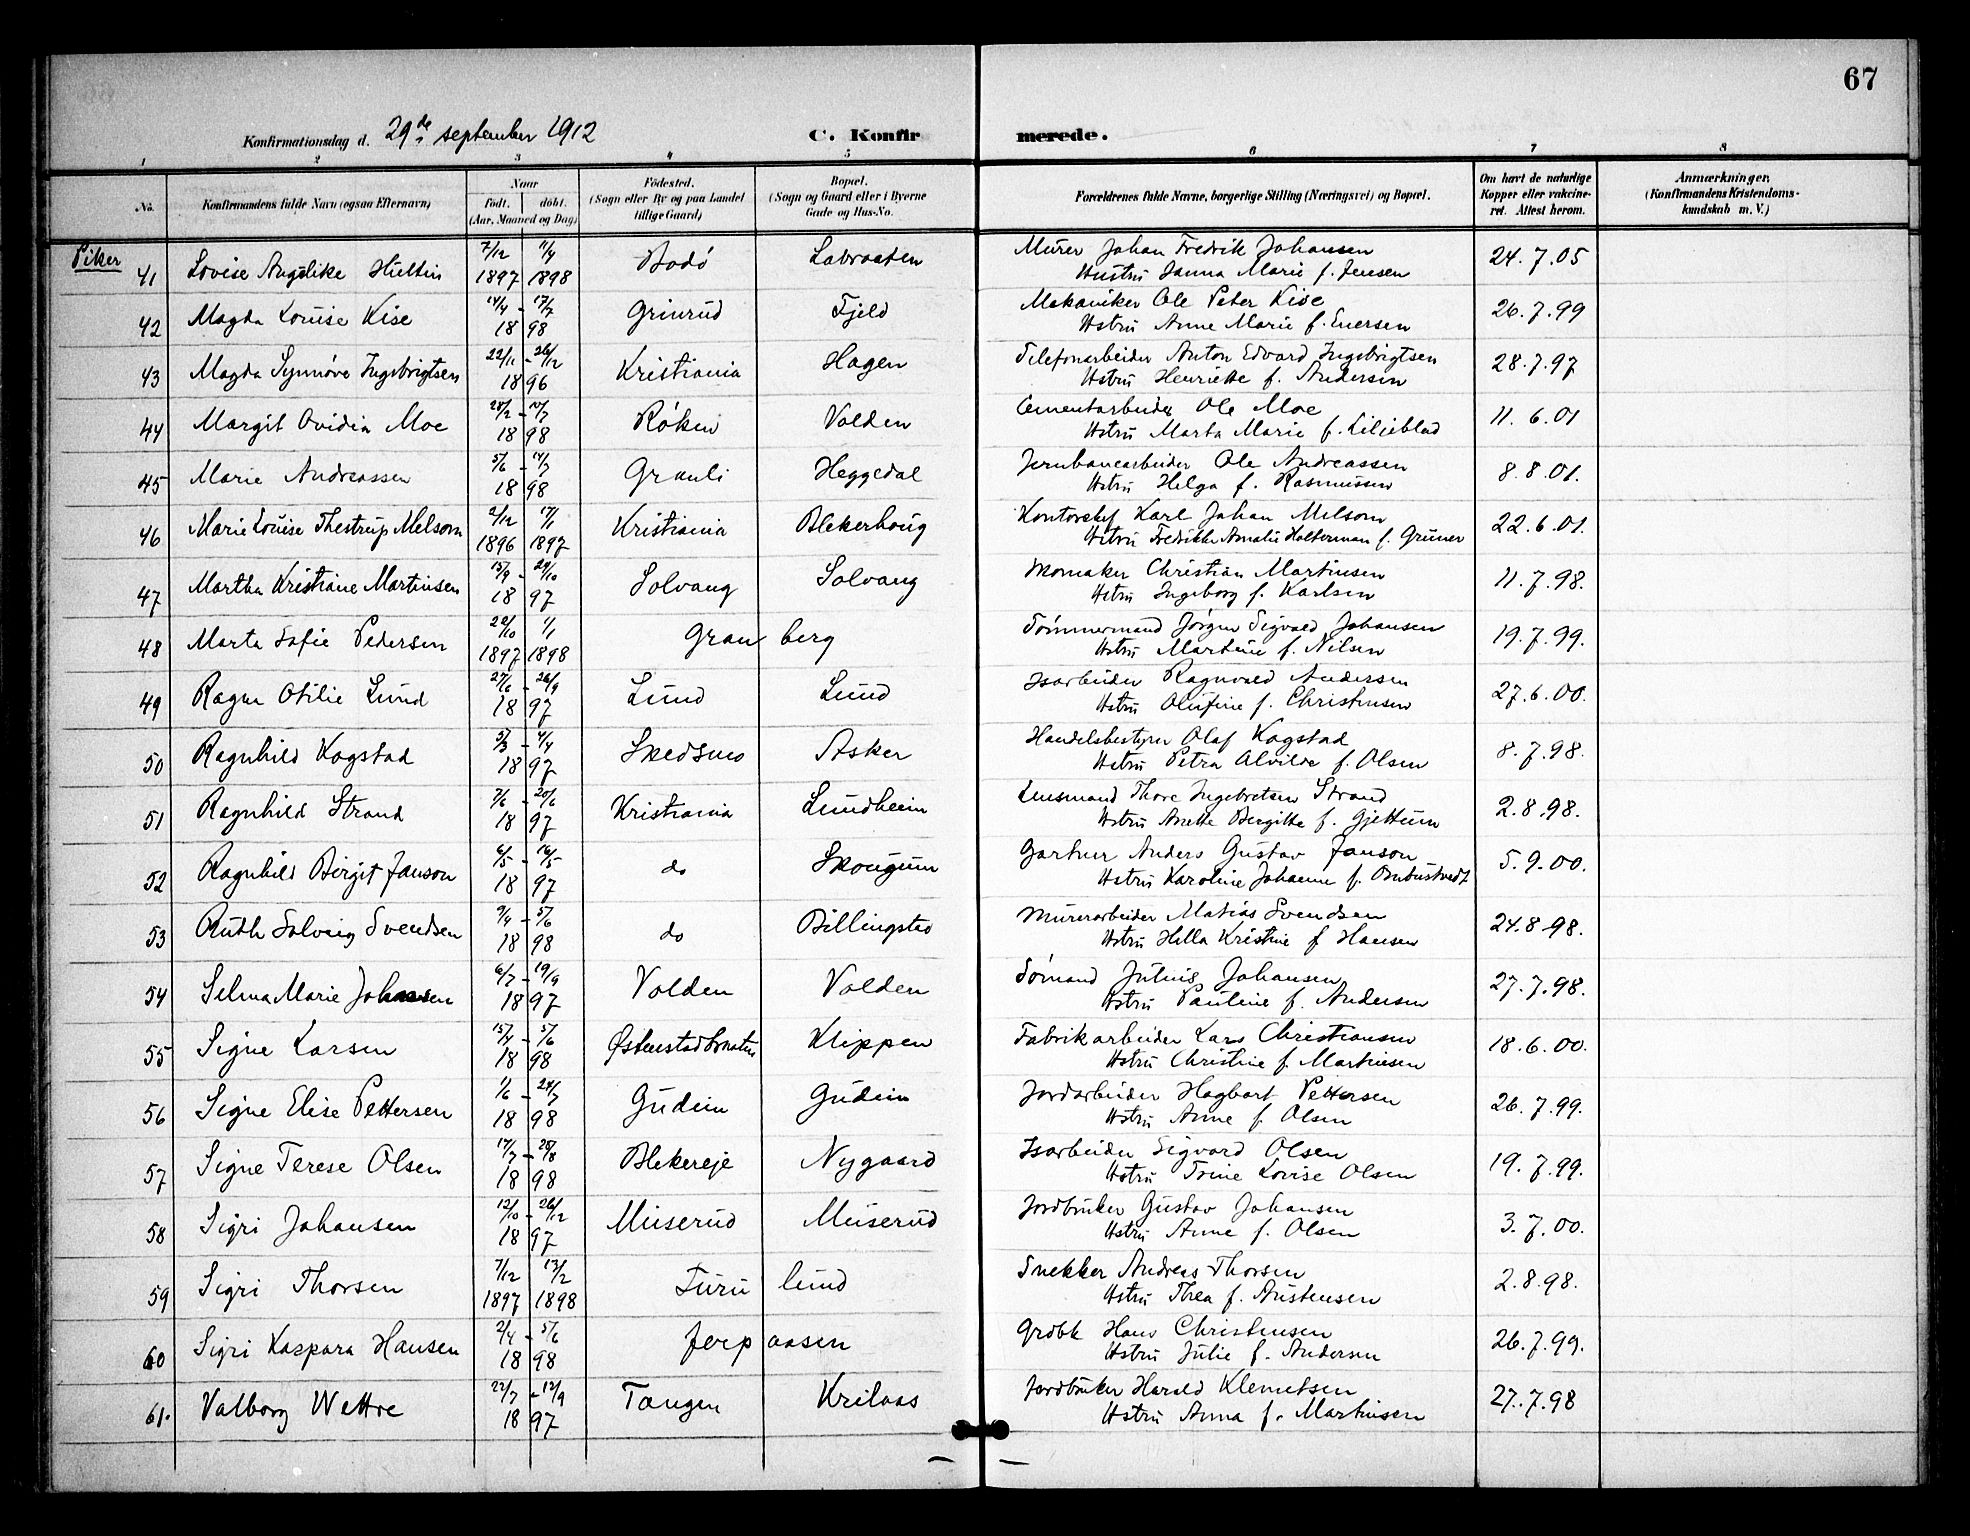 67
Konfirmationsdag d. 29de september 1912
C. Konfirmerede.
1 2 3 4 5 6 7 8
No.
Konfirmandens fulde Navn (ogsaa Efternavn)
Naar
født. døbt.
(Aar, Maaned og Dag)
Fødested.
(Sogn eller By og paa Landet
tillige Gaard)
Bopæl.
(Sogn og Gaard eller i Byerne
Gade og Hus-No.
Forældrenes fulde Navne, borgerlige Stilling (Næringsvei) og Bopæl.
Om havt de naturlige
Kopper eller vakcine-
ret. Attest herom.
Anmærkninger.
(Konfirmandens Kristendoms-
kundskab m. V.)
Piker
41 Lovise Angelike Hultin 7/12 1897 11/4 1898 Bodö Labraaten Murer Johan Fredrik Johansen 24.7.05
Hustru Janna Marie f. Jensen
42 Magda Louise Kise 14/4 - 17/7 1898 Grinrud Fjeld Mekaniker Ole Peter Kise 26.7.99
Hstru Anne Marie f. Enersen
43 Magda Synnöve Ingebrigtsen 22/11 - 26/12 1896 Kristiania Hagen Telefonarbeider Anton Edvard Ingebrigtsen 28.7.97
Hstru Henriette f. Andersen
44 Margit Ovidia Moe 28/2 - 1898 Røken Volden Cementarbeider Ole Moe 11.6.01
Hstru Marta Marie f. Lilieblad
45 Marie Andreassen 5/6 - 1898 Grauli Heggedal Jernbanearbeider Ole Andreassen 8.8.01.
Hstru Helga f. Rasmussen
46 Marie Louise Thestrup Melsom 2/12 1896 17/1 1897 Kristiania Blekerhoug Kontorchef Karl Johan Melsom 22.6.01.
Hstru Fredrikke Amalie Halterman f. Grüner
47 Martha Kristiane Martinsen 15/9 - 24/10 1897 Solvang Solvang Momaker Christian Martinsen 11.7.98.
Hstru Ingeborg f. Karlsen
48 Marta Sofie Pedersen 22/10 1897 1/1 1898 Granberg Tömmermand Jörgen Sigvald Johansen 19.7.99.
Hstru Martine f. Nilsen
49 Ragna Otilie Lund 27/6 - 26/9 1897 Lund Lund Isarbeider Ragnvald Andersen 27.6.00.
Hstru Olufine f. Christensen
50 Ragnhild Kogstad 5/3 - 4/4 1897 Skedsmo Asker Handelsbestyrer Olaf Kogstad 8.7.98.
Hstru Petra Alvilde f. Olsen
51 Ragnhild Strand 7/6 - 20/6 1897 Kristiania Lundheim Lensmand Thore Ingebretsen Strand 2.8.98.
Hstru Anette Bergitte f. Gjettum
52 Ragnhild Birgit Janson 6/5 - 16/5 1897 do Skougum Gartner Anders Gustav Janson 5.9.00.
Hstru Karoline Johanne f.
53 Ruth Solveig Svendsen 9/4 - 5/6 1898 do Billingstad Murerarbeider Matias Svendsen 24.8.98.
Hstru Hilla Kristine f Hansen
54 Selma Marie Johansen 6/7 - 19/9 1897 Volden Volden Sömand Julius Johansen 27.7.98.
Hstru Pauline f. Andersen
55 Signe Larsen 15/4 - 5/6 1898 Østenstad Klippen Fabrikarbeider Lars Christiansen 18.6.00.
Hstru Christine f. Martinsen
56 Signe Elise Pettersen 1/6 - 24/7 1898 Gudeim Gudeim Jordarbeider Hagbart Pettersen 26.7.99.
Hstru Anne f. Olsen
57 Signe Terese Olsen 17/7 - 28/8 1898 Blekereje Nygaard Isarbeider Sigvard Olsen 19.7.99.
Hstru Trine Lovise Olsen
58 Sigri Johansen 12/10 - 26/12 1897 Muserud Muserud Jordbruker Gustav Johansen 3.7.00.
Hstru Anne f. Olsen
59 Sigri Thorsen 7/12 1897 13/2 1898 Furulund Snekker Andreas Thorsen 2.8.98.
Hstru Thea f. Austensen
60 Sigri Kaspara Hansen 2/4 - 5/6 1898 Jerpaasen Grdbk Hans Christensen 26.7.99.
Hstru Julie f. Andersen
61. Valborg Wettre 22/7 - 12/9 1897 Tangen Krilaas Jordbruker Harald Klemetsen 27.7.98
Hstru Anna f. Martinsen